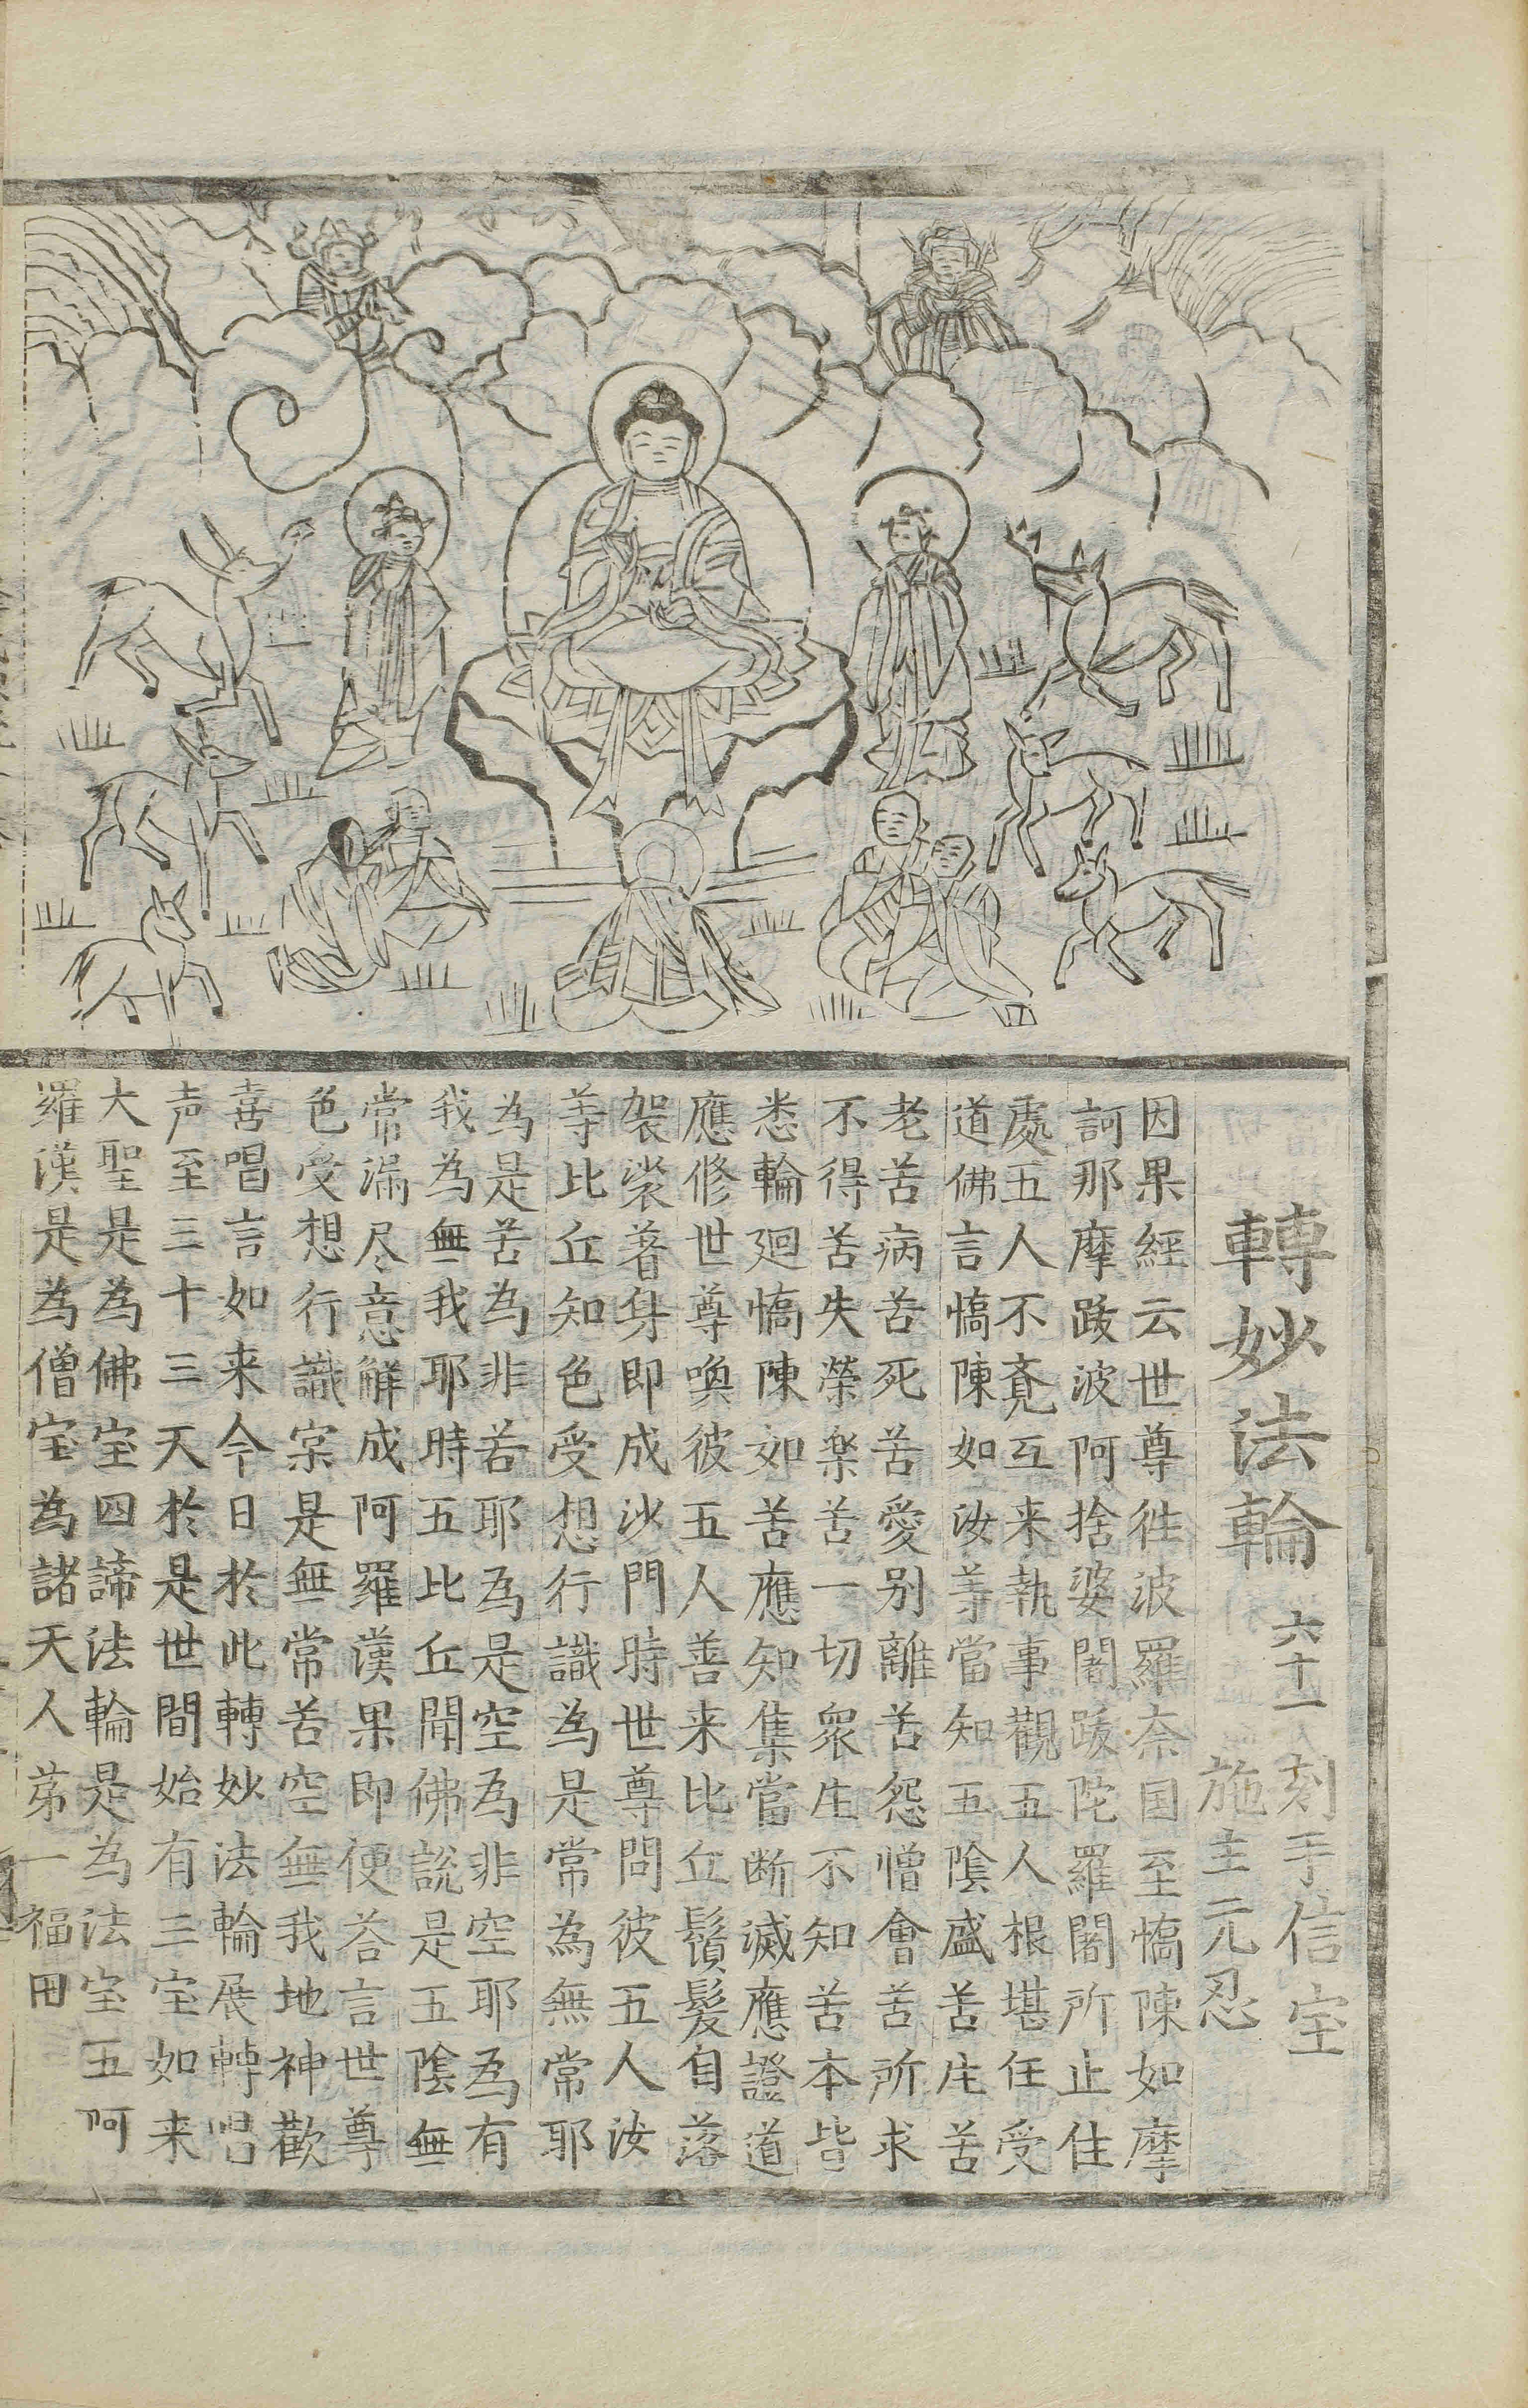 轉妙法輪 六十一
刻手信宝
施主元忍
因果經云世尊徃波羅奈国至憍陳如摩
訶那摩跋波阿捨婆闍跋陀羅闍所止住
處五人不覔互来執事觀五人根堪任受
道佛言憍陳如汝等當知五陰盛苦庄苦
老苦病苦死苦愛别離苦怨憎會苦所求
不得苦失榮楽苦一切衆生不知苦本皆
悉輪廻憍陳如苦應知集當断滅應證道
應修世尊喚彼五人善来比丘鬚髮自落
袈裟著身即成沙門時世尊問彼五人汝
等比丘知色受想行識為是常為無常耶
為是苦為非苦耶為是空為非空耶為有
我為無我耶時五比丘聞佛說是五陰無
常漏尽意解成阿羅漢果即便荅言世尊
色受想行識寀是無常苦空無我地神歡
喜唱言如来今日於此轉妙法輪展轉唱
声至三十三天於是世間始有三宝如来
大聖是為佛宝四諦法輪是為法宝五阿
羅漢是為僧宝為諸天人苐一福田